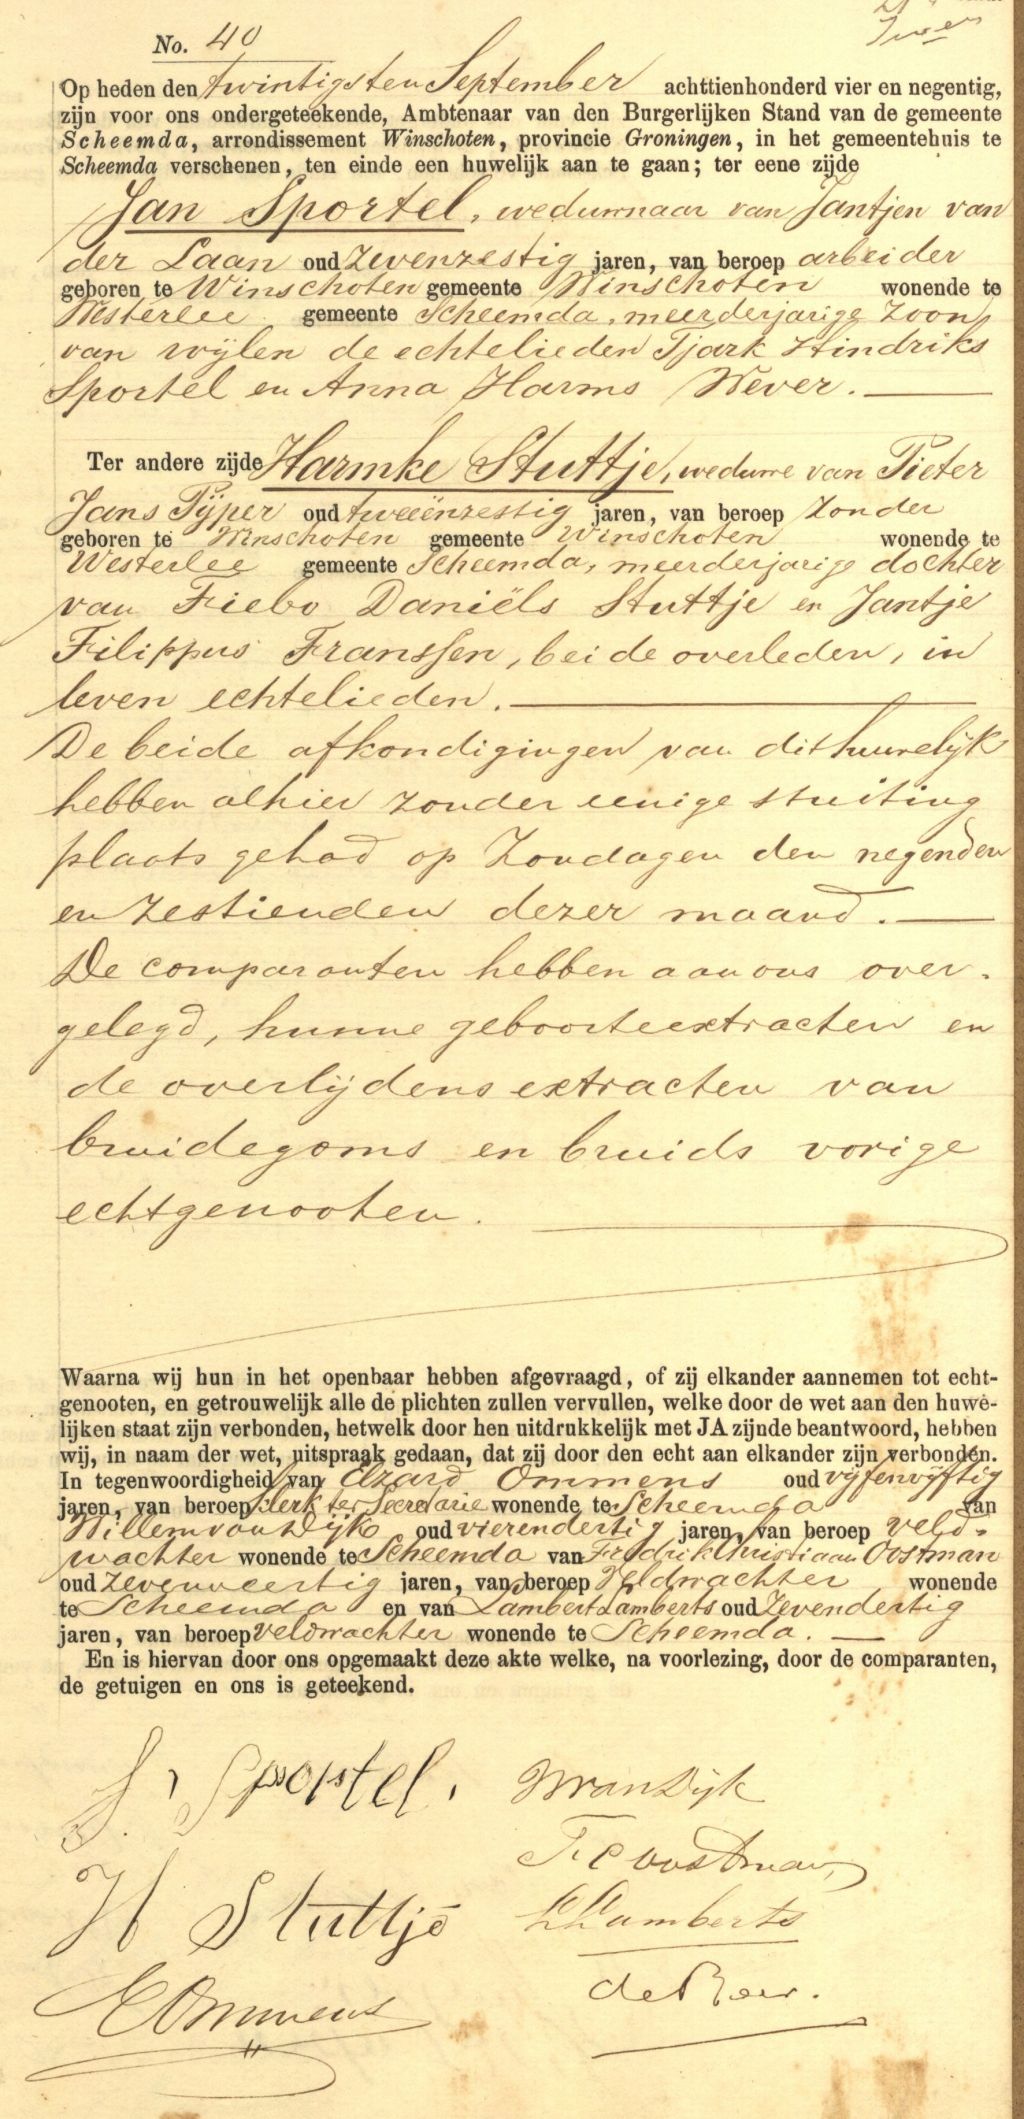 No. 40
Op heden den twintigsten September achttienhonderd vier en negentig,
zijn voor ons ondergeteekende, Ambtenaar van den Burgerlijken Stand van de gemeente
Scheemda, arrondissement Winschoten, provincie Groningen, in het gemeentehuis te
Scheemda verschenen, ten einde een huwelijk aan te gaan; ter eene zijde
Jan Sportel, weduwnaar van Jantjen van
der Laan oud zevenzestig jaren, van beroep arbeider
geboren te Winschoten gemeente Winschoten wonende te
Westerlee gemeente Scheemda, meerderjarige zoon
van wijlen de echtelieden Tjark Hindriks
Sportel en Anna Harms Wever.
Ter andere zijde Harmke Stuttje, weduwe van Pieter
Jans Pijper oud tweeënzestig jaren, van beroep zonder
geboren te Winschoten gemeente Winschoten wonende te
Westerlee gemeente Scheemda, meerderjarige dochter
van Fiebo Daniëls Stuttje en Jantje
Filippus Franssen, beide overleden, in
leven echtelieden.
De beide afkondigingen van dit huwelijk
hebben alhier zonder eenige stuiting
plaats gehad op Zondagen den negenden
en zestienden dezer maand.
De comparanten hebben aan ons over-
gelegd, hunne geboorteextracten en
de overlijdensextracten van
bruidegoms en bruids vorige
echtgenooten.
Waarna wij hun in het openbaar hebben afgevraagd, of zij elkander aannemen tot echt-
genooten, en getrouwelijk alle de plichten zullen vervullen, welke door de wet aan den huwe-
lijken staat zijn verbonden, hetwelk door hen uitdrukkelijk met JA zijnde beantwoord, hebben
wij, in naam der wet, uitspraak gedaan, dat zij door den echt aan elkander zijn verbonden.
In tegenwoordigheid van Edzard Ommens oud vijfenvijftig
jaren, van beroep klerk ter Secretarie wonende te Scheemda van
Willem van Dijk oud vierendertig jaren, van beroep veld-
wachter wonende te Scheemda van Fredrik Christiaan Oostman
oud zevenveertig jaren, van beroep Veldwachter wonende
te Scheemda en van Lambert Lamberts oud zevendertig
jaren, van beroep veldwachter wonende te Scheemda.
En is hiervan door ons opgemaakt deze akte welke, na voorlezing, door de comparanten,
de getuigen en ons is geteekend.
J. Sportel. WvanDijk
F C Oostman
H Stuttje LLamberts
EOmmens de Boer.